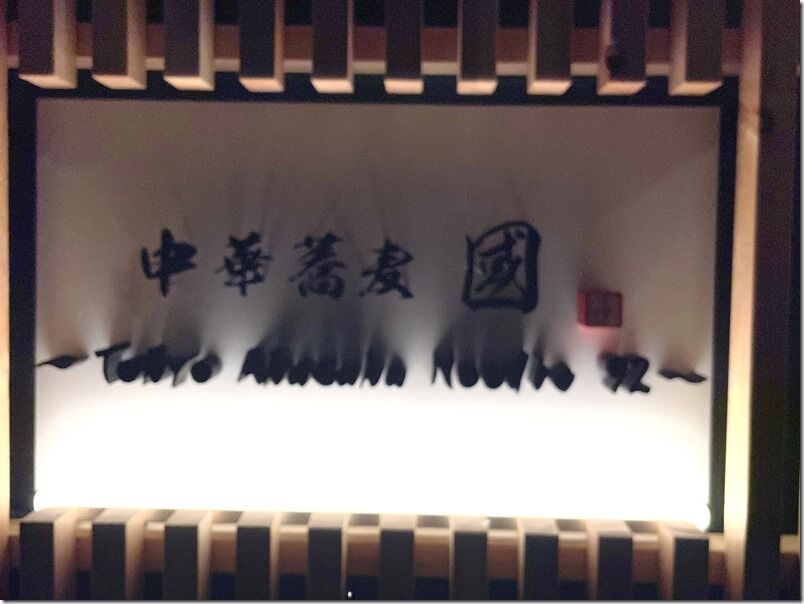 中華蕎麦 國
~ Tokyo Noodle 92 ~